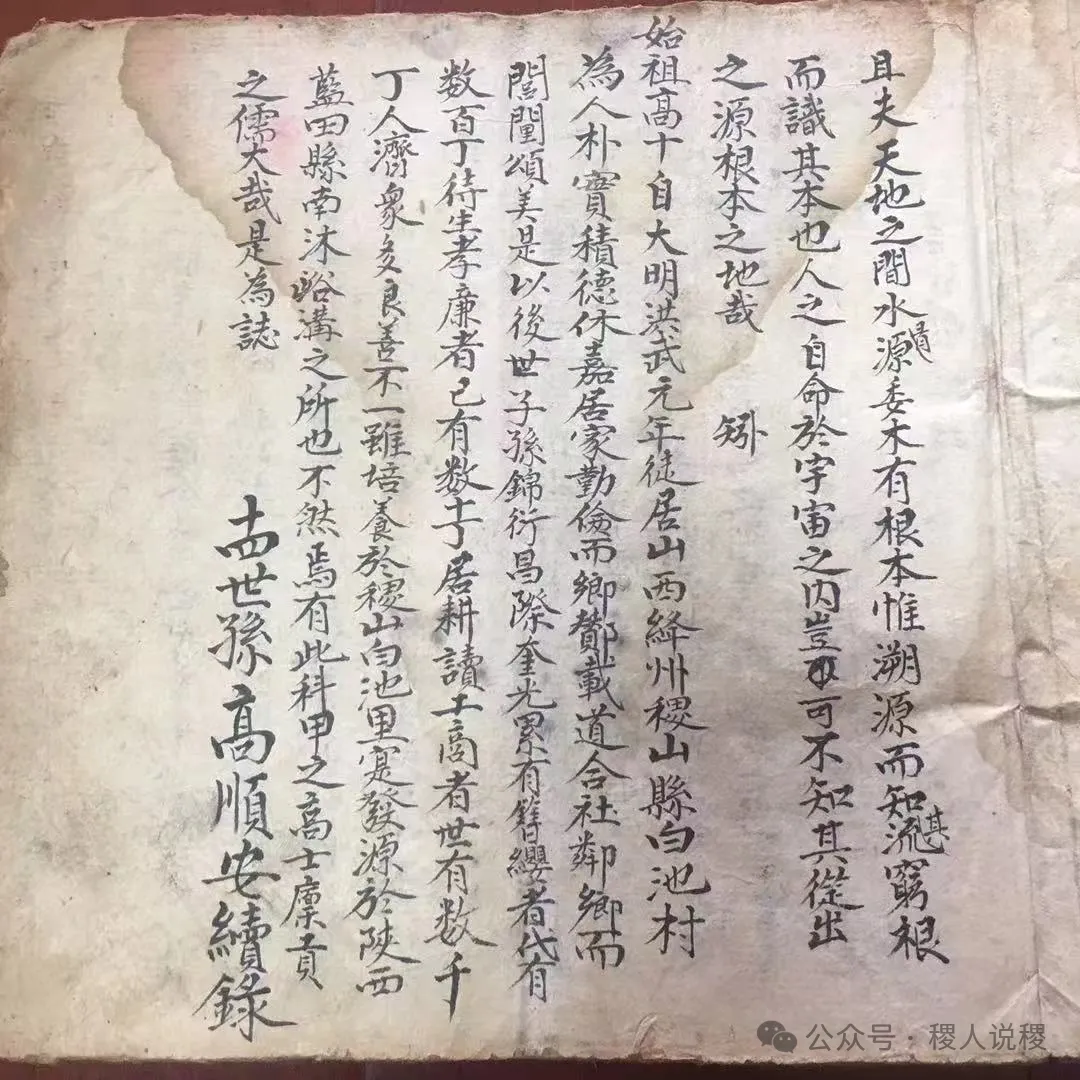 且夫天地之間水源有委木有根本惟溯源而知其流窮根
而識其本也人之自命於宇宙之内豈可不知其從出
之源根本之地哉 矧
始祖高十自大明洪武元年徒居山西絳州稷山縣白池村
為人朴實積德休嘉居家勤倫而鄉鄰載道合社鄰鄉而
閭閻頌美是以後世子孫錦衍昌際奎光累有簪纓者代有
数百丁待生孝廉者已有数十丁居耕讀工商者世有数千
丁人濟衆多良善不一雖培養於稷山白池里寔發源於陝西
藍田縣南沐峪溝之所也不然焉有此科甲之高士廩貢
之儒大哉是為誌
十四世孫高順安續錄
公众号·稷人说稷